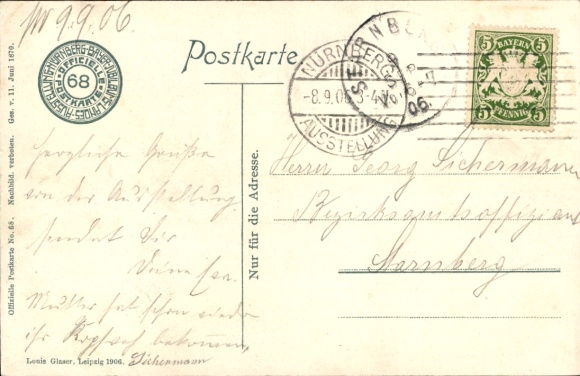 9.9.06.
BAYER. JUBILÄUMS-LANDES-AUSSTELLUNG NÜRNBERG
OFFICIELLE POSTKARTE
68
Postkarte
NÜRNBERG
-8.9.06. 3-4
AUSSTELLUNG
06.
5 BAYERN 5
5 PFENNIG 5
Officielle Postkarte No. 68. Nachbild. verboten. Ges. v. 11. Juni 1870.
Nur für die Adresse.
Herzliche Grüße
von der Ausstellung
sendet Dir
Deine
Mutter hat schon wieder
ihr Kopfweh bekommen,
Sichermann
Herrn Georg Sichermann
Bezirksamtsoffiziant
Starnberg
Louis Glaser, Leipzig 1906.